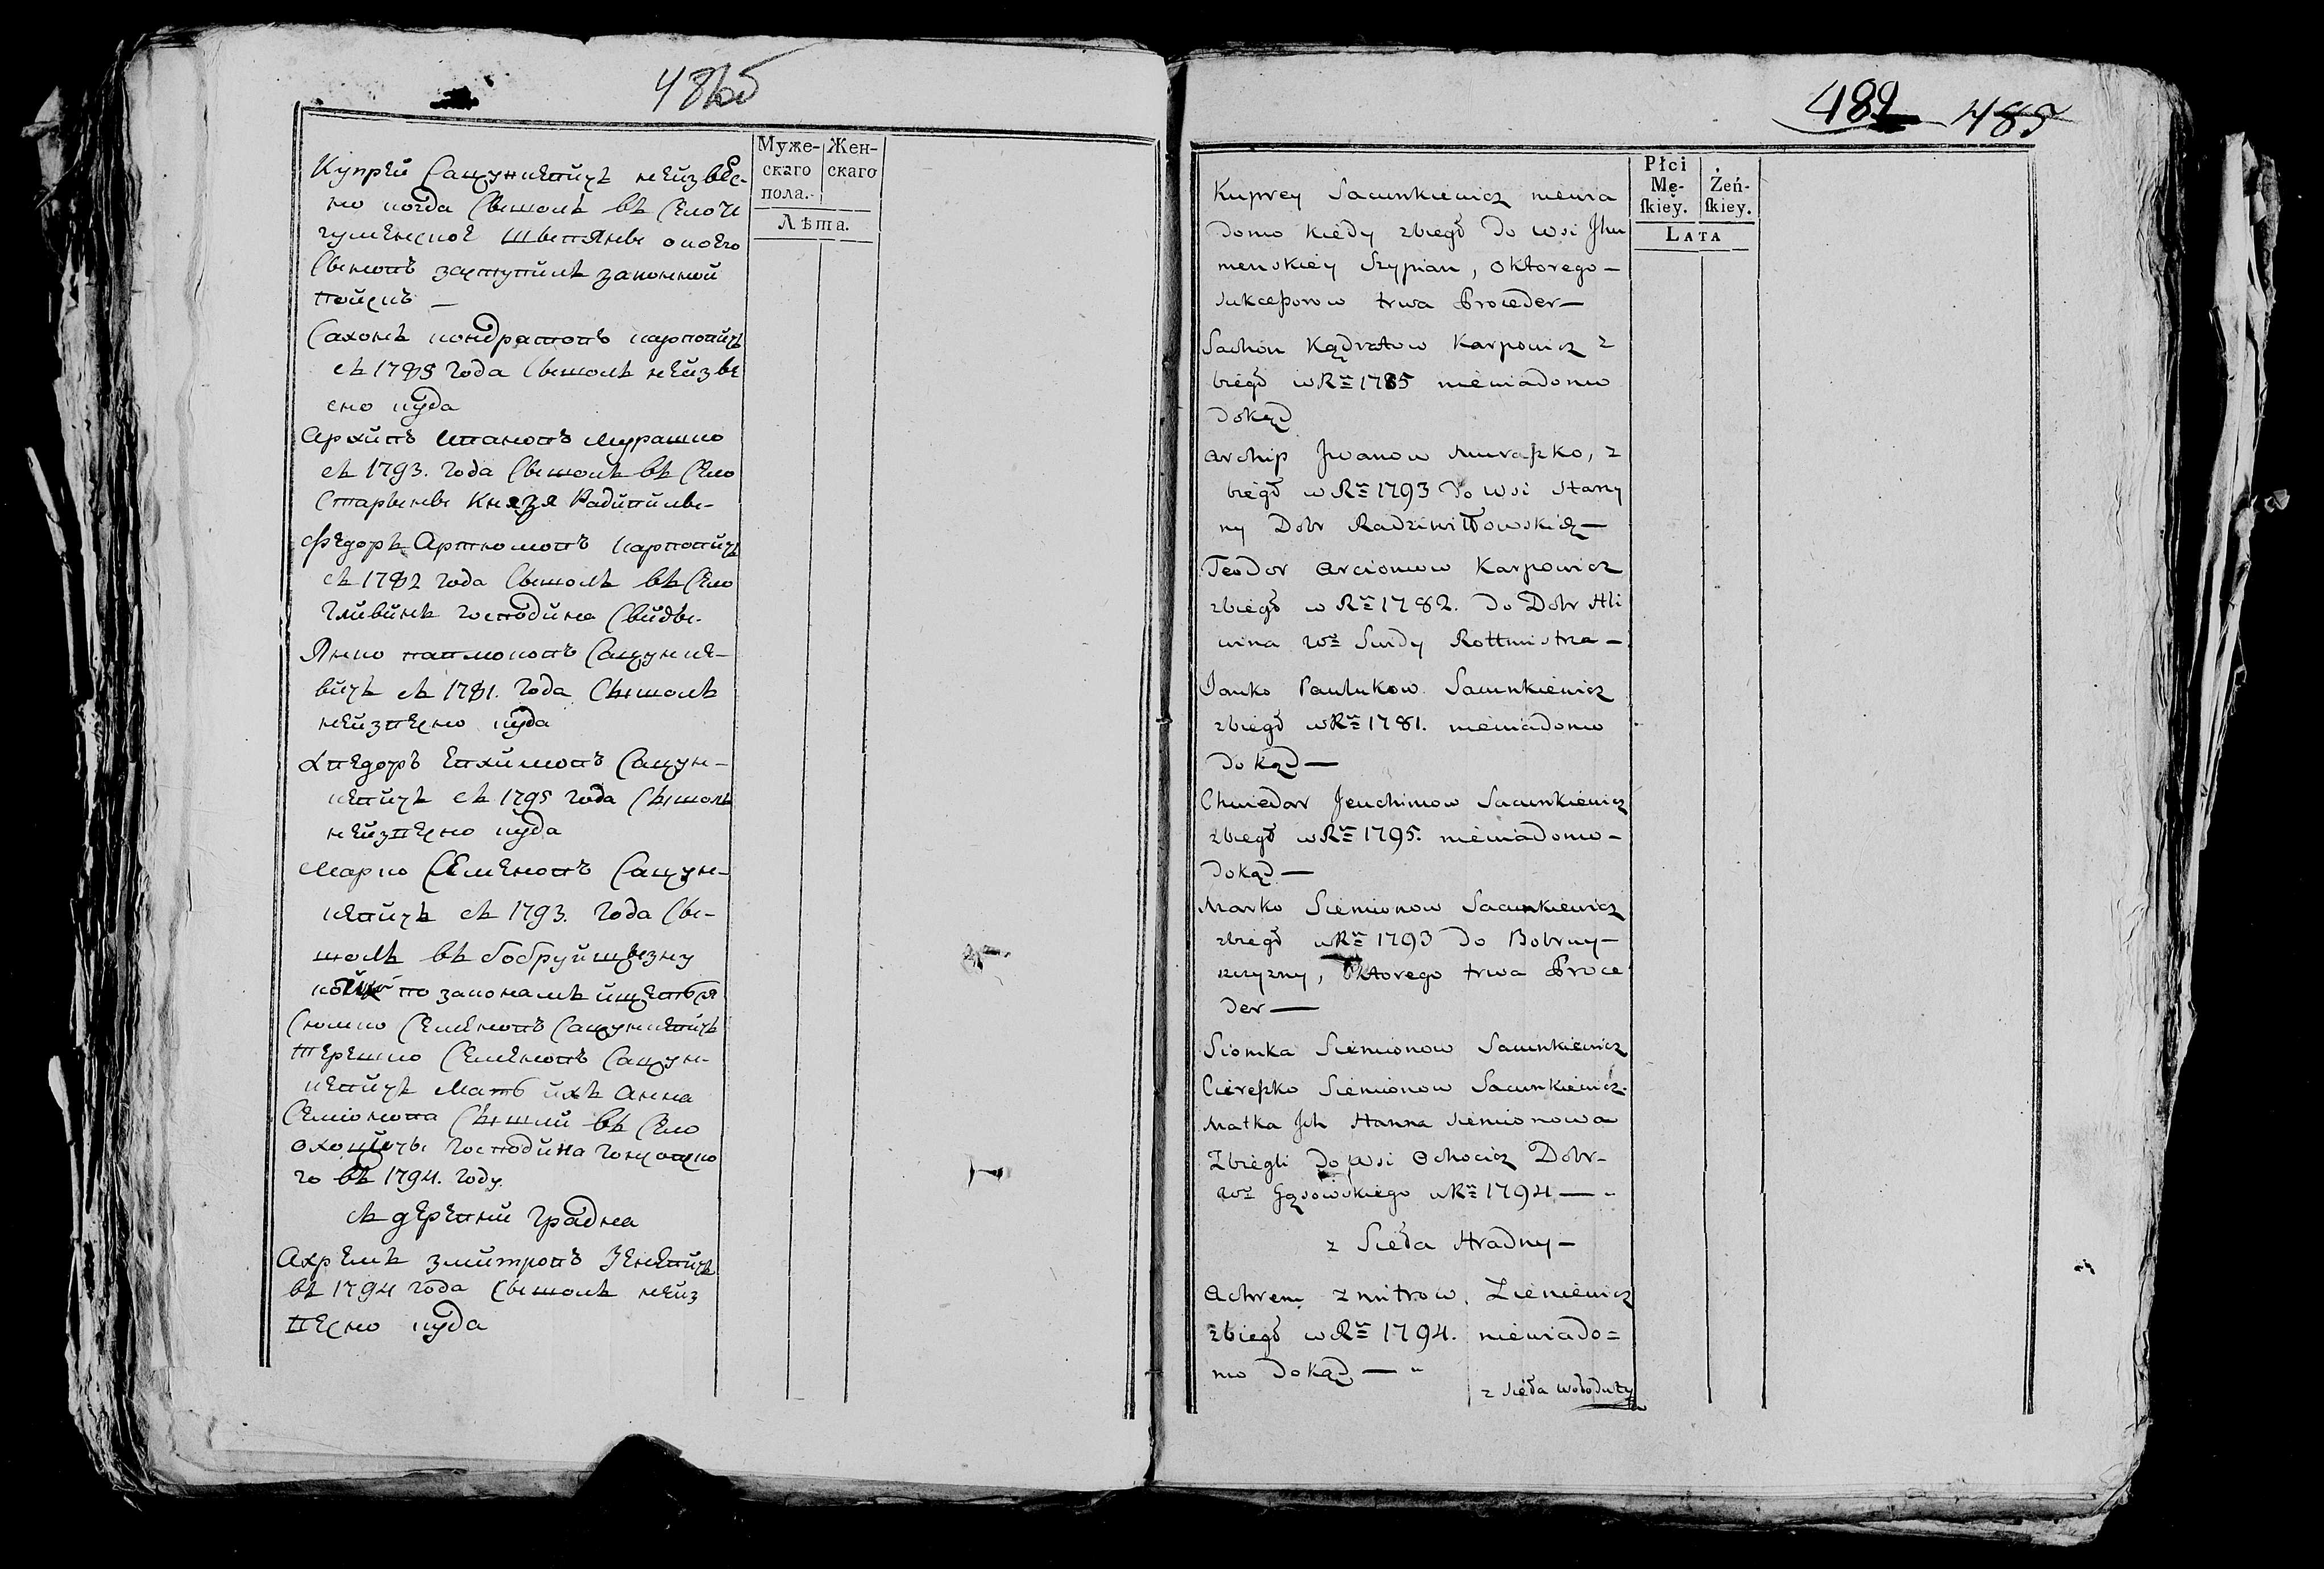 488об
Муже- Жен-
скаго скаго
пола.
Лѣта.
Купрей Сацункевичъ неизвес-
но когда Сышолъ въ Село И
гуменское Шыпяны о коего
Сыновъ заступилъ законной
поискъ —
Сахонъ кондратовъ карповичъ
съ 1785 года Сышолъ неизве
сно куда
Архипъ Ивановъ Мурашко
съ 1793. года Сышолъ въ Село
Старыны Князя Радивилы-
Федоръ Артиомовъ Карповичъ
съ 1782 года Сышолъ въ Село
Гливинъ господина Свиды-
Янко павлюковъ Сацунке-
вичъ съ 1781. года Сышолъ
неизвесно куда
Хведоръ Евхимовъ Сацун-
кевичъ съ 1795 года Сышолъ
неизвесно куда
Марко Семеновъ Сацун-
кевичъ съ 1793. года Сы-
шолъ въ бобруйщызну
по законамъ ищетъся
Сиомко Семеновъ Сацункевичъ
Терешко Семеновъ Сацун-
кевичъ Мать ихъ Анна
Семионова Сышли въ Село
Охоцичы господина гонсовско
го въ 1794. году.
съ деревни градна
Ахремъ змитровъ Зеневичъ
въ 1794 года Сышолъ неиз
весно куда
489 485
Płci
Mę- Żeń-
skiey. skiey.
LATA
Kuprey Sacunkiewicz niewia
domo kiedy zbiegł do wsi Jhu
menskiey Szypian, o ktorego —
sukcessorow trwa Proceder —
Sachon Kądratow Karpowicz z
biegł w Rᵘ 1785 niewiadomo
dokąd
Archip Jwanow Muraszko, z
biegł w Rᵘ 1793 do wsi Stary
ny Dobr Radziwiłłowskich —
Teodor Arciomow Karpowicz
zbiegł w Rᵘ 1782. do Dobr Hli
wina Wᵒ Swidy Rottmistrza —
Janko Pawlukow Sacunkiewicz
zbiegł w Rᵘ 1781. niewiadomo
dokąd —
Chwiedor Jeuchimow Sacunkiewicz
zbiegł w Rᵘ 1795. niewiadomo —
dokąd —
Marko Siemionow Sacunkiewicz
zbiegł w Rᵘ 1793 do Bobruy —
szczyzny, o ktorego trwa Proce
der —
Siomka Siemionow Sacunkiewicz
Ciereszko Siemionow Sacunkiewicz.
Matka Jch Hanna Siemionowa
Zbiegli do Wsi Ochocicz Dobr-
Wᵒ Gąsowskiego w Rᵘ 1794 —
z Sieła Hradny —
Achrem Zmitrow Zieniewicz
zbiegł w Rᵘ 1794. niewiado=
mo dokąd —
z sieła Wołoduty